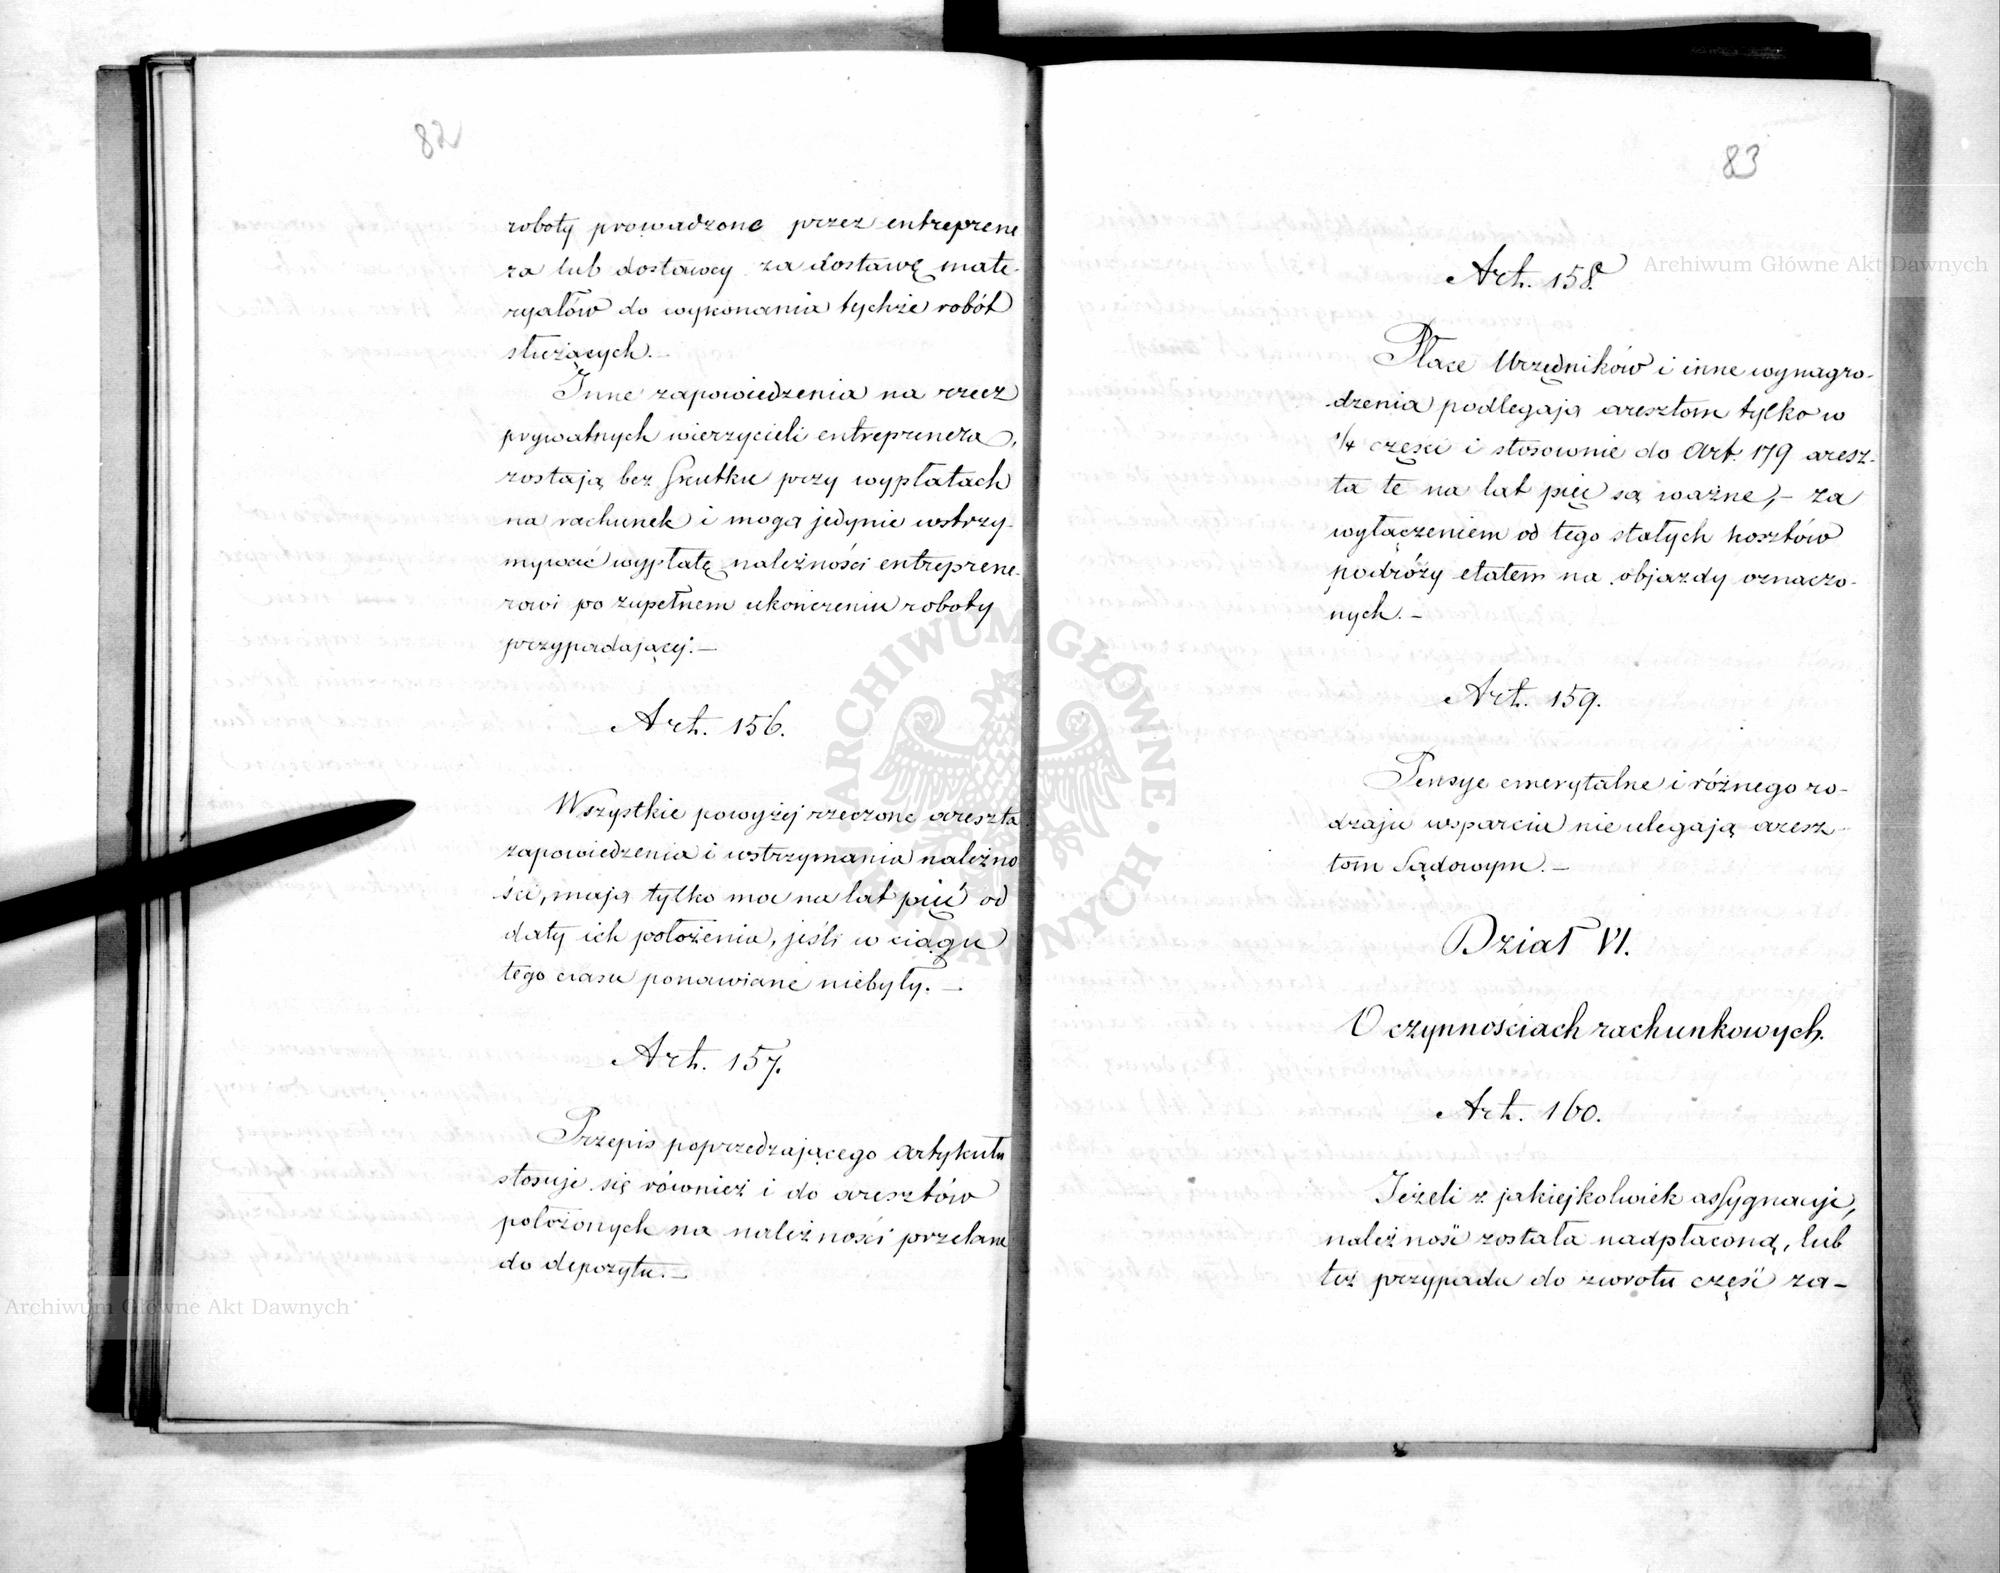 82
roboty prowadzone przez entreprene
ra lub dostawcy za dostawę mate-
ryałów do wykonania tychże robót
służących.—
Inne zapowiedzenia na rzecz
prywatnych wierzycieli entreprenera,
zostają bez skutku przy wypłatach
na rachunek i mogą jedynie wstrzy-
mywać wypłatę należności entreprene-
rowi po zupełnem ukończeniu roboty
przypadającej.—
Art. 156.
Wszystkie powyżej rzeczone areszta
zapowiedzenia i wstrzymania należno
ści, mają tylko moc na lat pięć od
daty ich położenia, jeśli w ciągu
tego czasu ponawiane niebyły.—
Art. 157.
Przepis poprzedzającego artykułu
stosuje się również i do aresztów
położonych na należności przelane
do depozytu.—
83
Art. 158.
Płace Urzędników i inne wynagro-
dzenia podlegają aresztom tylko w
1/4 części i stosownie do Art. 179 aresz-
ta te na lat pięć są ważne,— za
wyłączeniem od tego stałych kosztów
podróży etatem na objazdy oznaczo-
nych.—
Art. 159.
Pensye emerytalne i różnego ro-
dzaju wsparcia nie ulegają aresz-
tom Sądowym.—
Dział VI.
O czynnościach rachunkowych.
Art. 160.
Jeżeli z jakiejkolwiek assygnacyi,
należność została nadpłaconą, lub
też przypada do zwrotu część za-
Archiwum Główne Akt Dawnych
Archiwum Główne Akt Dawnych
ARCHIWUM GŁÓWNE AKT DAWNYCH